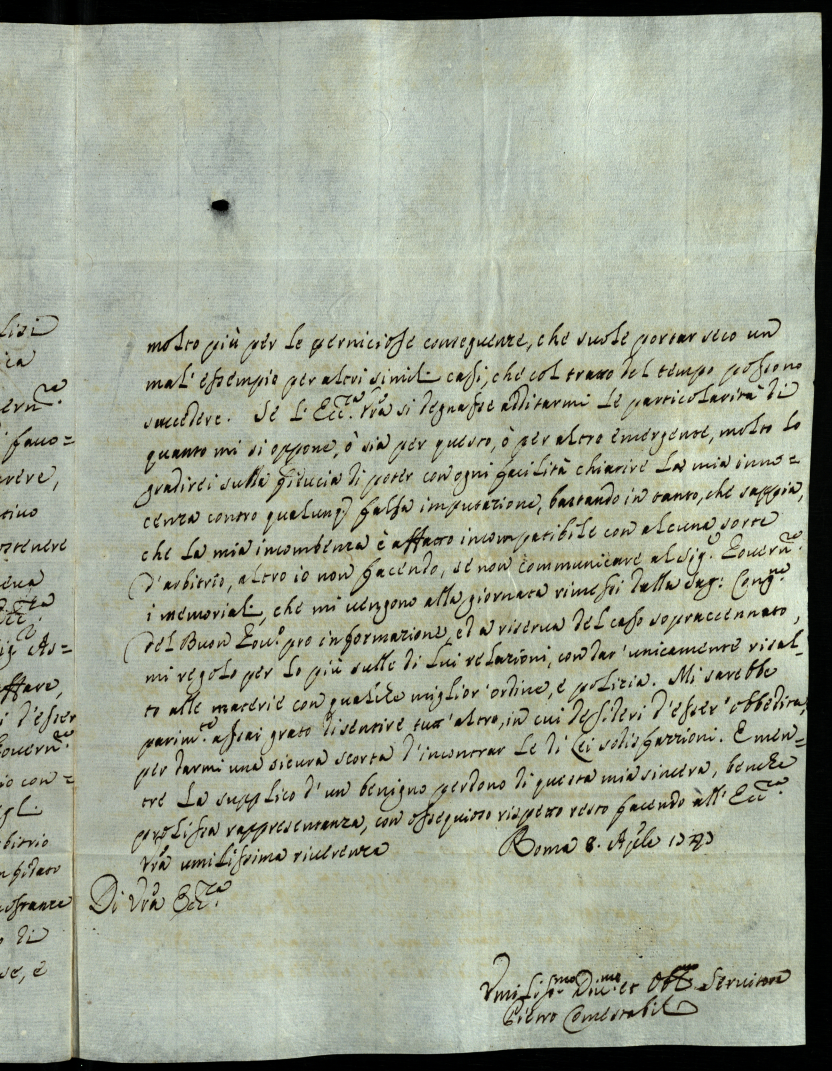 molto più per le perniciose conseguenze, che suole portar seco un
mal'essempio per altri simili casi, che col tratto del tempo possono
succedere. Se l'Ecc.za Vra si degnasse additarmi le particolarità di
quanto mi si oppone, ò sia per questo, ò per altro emergente, molto lo
gradirei sulla fiducia di poter con ogni facilità chiarire la mia inno=
cenza contro qualunq; falsa imputazione, bastando in tanto, che sappia,
che la mia incombenza è affatto incompatibile con alcuna sorte
d'arbitrio, altro io non facendo, se non communicare al Sig.r Govern.re
i memoriali, che mi vengono alla giornata rimessi dalla Sag: Cong.ne
del Buon Gov.o pro informazione, ed a riserva del caso sopraccennato,
mi regolo per lo più sulle di lui relazioni, con dar'unicamente risal=
to alle materie con qualche miglior'ordine, e polizia. Mi sarebbe
parim.te assai grato di sentire tutt'altro, in cui desideri d'esser'obbedita,
per darmi una sicura scorta d'incontrar le di Lei sodisfazzioni. E men=
tre La supplico d'un benigno perdono di questa mia sincera, benche
prolissa rappresentanza, con ossequioso rispetto resto facendo all'Ecc.za
Vra umilissima riverenza Roma 8. Aple
Di Vra Ecc.za
Umiliss.mo Div.mo et Obb.mo Servitore
Pietro Conestabili
lisi
ica
vern.re
favo=
avere,
tivo
ostenere
Ecc.za
Sig As=
affare,
i d'esser
Govern.re
io con=
egli
bitrio
di